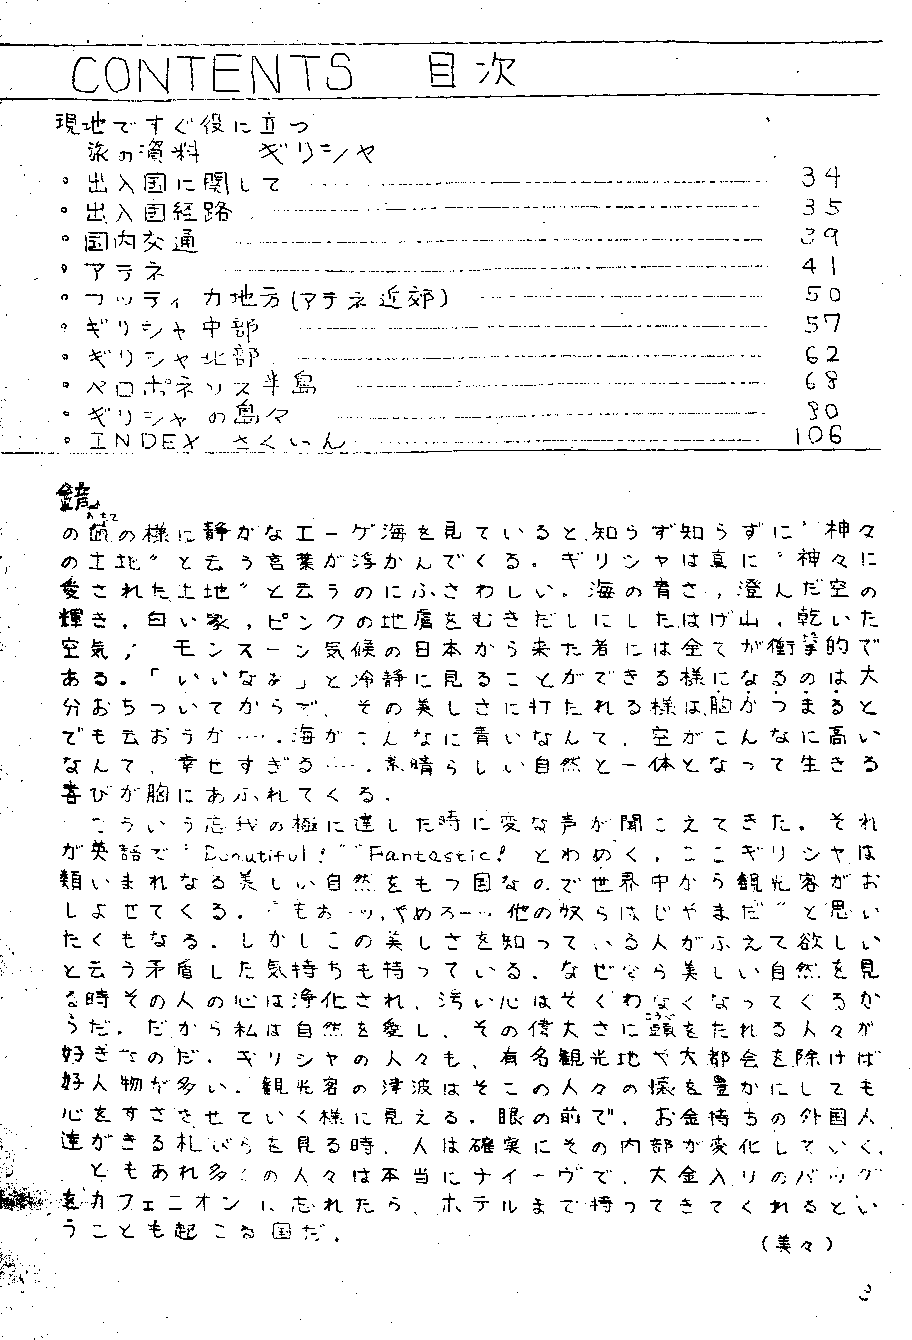 CONTENTS 目次
現地ですぐ役に立つ
旅の資料 ギリシャ
• 出入国に関して 34
• 出入国経路 35
• 国内交通 39
• アテネ 41
• アッティカ地方(アテネ近郊) 50
• ギリシャ中部 57
• ギリシャ北部 62
• ペロポネソス半島 68
• ギリシャの島々 90
• INDEX さくいん 106
鏡
の面の様に静かなエーゲ海を見ていると、知らず知らずに"神々
の土地"と云う言葉が浮かんでくる。ギリシャは真に"神々に
愛された土地"と云うのにふさわしい。海の青さ、澄んだ空の
輝き、白い家、ピンクの地膚をむきだしにしたはげ山、乾いた
空気! モンスーン気候の日本から来た者には全てが衝撃的で
ある。「いいなぁ」と冷静に見ることができる様になるのは大
分おちついてからで、その美しさに打たれる様は、胸がつまると
でも云おうか…。海がこんなに青いなんて、空がこんなに高い
なんて、幸せすぎる…。素晴らしい自然と一体となって生きる
喜びが胸にあふれてくる。
こういう忘我の極に達した時に変な声が聞こえてきた。それ
が英語で"Beautiful!""Fantastic!とわめく。ここギリシャは
類いまれなる美しい自然をもつ国なので世界中から観光客がお
しよせてくる。"もおーッ、やめろー… 他の奴らはじゃまだ"と思い
たくもなる。しかしこの美しさを知っている人がふえて欲しい
と云う矛盾した気持ちも持っている。なぜなら美しい自然を見
る時その人の心は浄化され、汚い心はそぐわなくなってくるか
らだ。だから私は自然を愛し、その偉大さに頭をたれる人々が
好きなのだ。ギリシャの人々も、有名観光地や大都会を除けば
好人物が多い。観光客の津波はそこの人々の懐を豊かにしても
心をすさませていく様に見える。眼の前で、お金持ちの外国人
達がきる札びらを見る時、人は確実にその内部が変化していく。
ともあれ多くの人々は本当にナイーヴで、大金入りのバッグ
をカフェニオンに忘れたら、ホテルまで持ってきてくれるとい
うことも起こる国だ。
(美々)
3